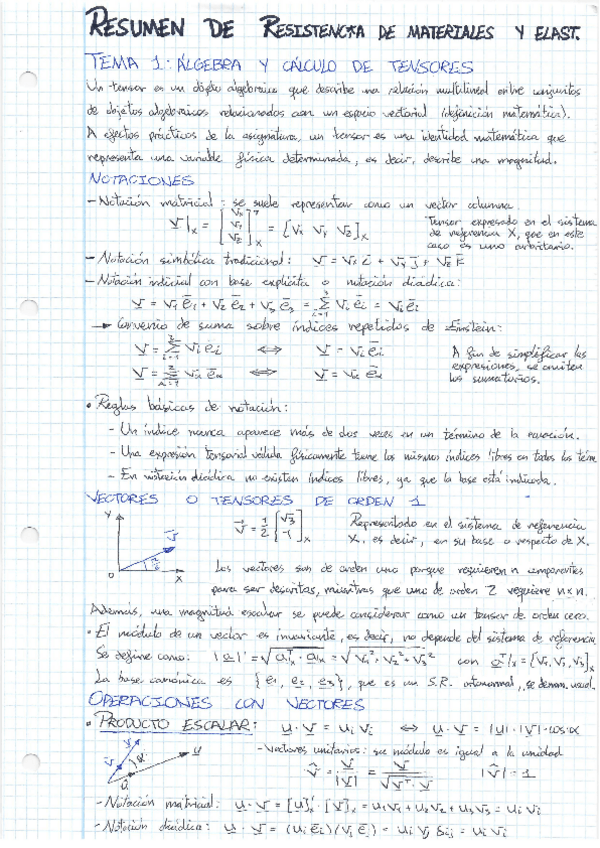 RESUMEN DE RESISTENCIA DE MATERIALES Y ELAST.
TEMA 1: ÁLGEBRA Y CÁLCULO DE TENSORES
Un tensor es un objeto algebraico que describe una relación multilineal entre conjuntos
de objetos algebraicos relacionados con un espacio vectorial (definición matemática).
A efectos prácticos de la asignatura, un tensor es una identidad matemática que
representa una variable física determinada, es decir, describe una magnitud.
NOTACIONES
- Notación matricial: se suele representar como un vector columna.
V|x = [V₁ V₂ ]ₓ
Tensor expresado en el sistema
de referencia X, que en este
caso es uno arbitrario.
- Notación simbólica tradicional:
- Notación indicial con base explícita o notación diádica:
V = V₁ē₁ + V₂ē₂ + V₃ē₃ = Σ Vᵢēᵢ = Vᵢēᵢ
→ Convenio de suma sobre índices repetidos de Einstein:
V = Σ Vᵢēᵢ ⇔ V = Vᵢēᵢ
A fin de simplificar las
expresiones, se omiten
los sumatorios.
V = Σ Vαēα ⇔ V = Vαēα
• Reglas básicas de notación:
- Un índice nunca aparece más de dos veces en un término de la ecuación.
- Una expresión tensorial válida físicamente tiene los mismos índices libres en todos los térm
- En notación diádica no existen índices libres, ya que la base está indicada.
VECTORES O TENSORES DE ORDEN 1
Y
V
O
X
V = 1/2 [√3 -1]ₓ
Representado en el sistema de referencia
X, es decir, en su base o respecto de X.
Los vectores son de orden uno porque requieren n componentes
para ser descritos, mientras que uno de orden 2 requiere n×n.
Además, una magnitud escalar se puede considerar como un tensor de orden cero.
• El módulo de un vector es invariante, es decir, no depende del sistema de referencia
Se define como: |a| = √(aᵀ|ₓ · a|ₓ) = √(V₁² + V₂² + V₃²) con aᵀ|ₓ = [V₁, V₂, V₃]ₓ
La base canónica es {e₁, e₂, e₃}, que es un S.R. ortonormal, se denom. usual.
OPERACIONES CON VECTORES
• PRODUCTO ESCALAR: u · v = uᵢ vᵢ ⇔ u · v = |u| · |v| · cos α
- Vectores unitarios: su módulo es igual a la unidad
v̂ = v/|v| = v/√(vᵀ · v) |v̂| = 1
- Notación matricial: u · v = [u]ᵀ · [v]ₓ = u₁v₁ + u₂v₂ + u₃v₃ = uᵢvᵢ
- Notación diádica: u · v = (uᵢēᵢ)(vⱼēⱼ) = uᵢvⱼδᵢⱼ = uᵢvᵢ